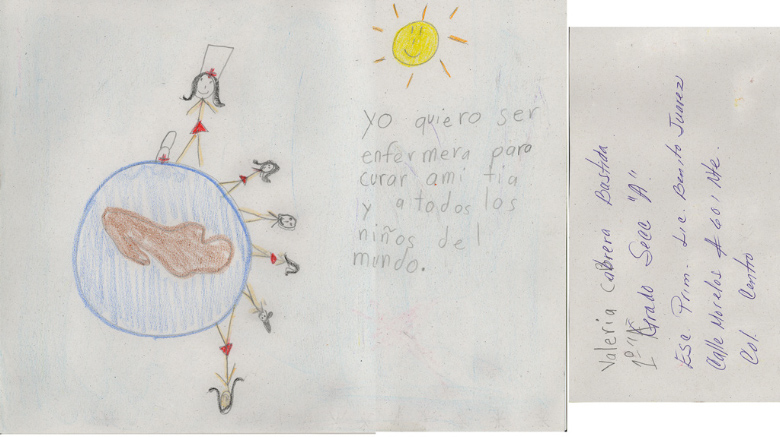 yo quiero ser
enfermera para
curar ami tia
y a todos los
niños del
mundo.
Valeria Cabrera Bastida
1º "A" Grado Secc "A".
Esc. Prim. Lic. Benito Juarez
Calle Morelos # 601 Nte.
Col. Centro